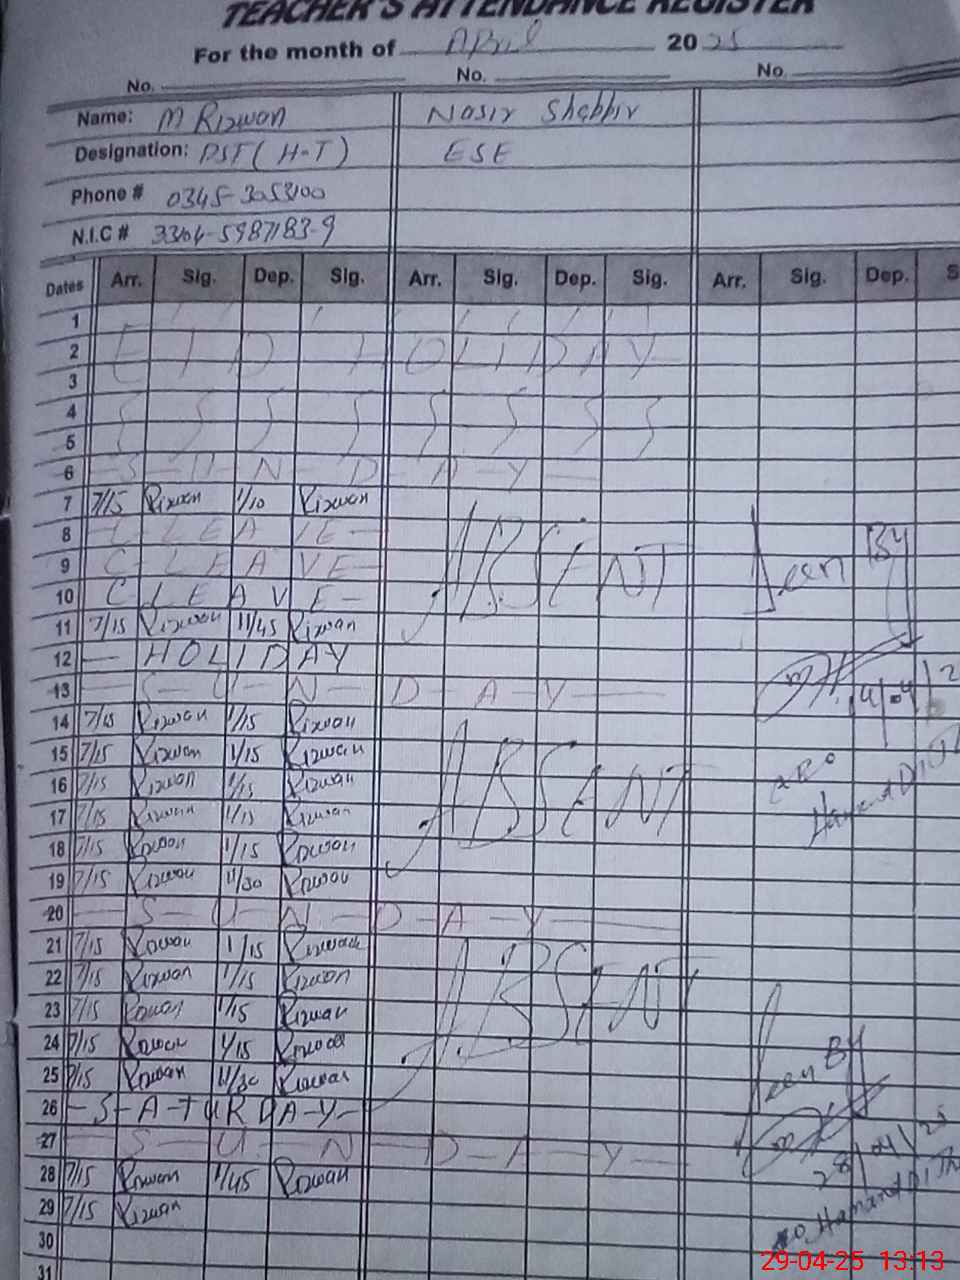 TEACHER'S ATTENDANCE REGISTER
For the month of April 2025
No. No. No.
Name: M Rizwan Nasir Shabbir
Designation: PST (H-T) ESE
Phone # 0345-3053100
N.I.C # 33104-5987183-9
Dates Arr. Sig. Dep. Sig. Arr. Sig. Dep. Sig. Arr. Sig. Dep. S
1
2 EID HOLIDAY
3
4
5
6 SUNDAY
7 7/15 Rizwan 1/10 Rizwan
8 C LEAVE
9 C LEAVE ABSENT Seen By
10 C LEAVE
11 7/15 Rizwan 11/45 Rizwan
12 HOLIDAY
13 SUNDAY
14 7/15 Rizwan 1/15 Rizwan
15 7/15 Rizwan 1/15 Rizwan
16 7/15 Rizwan 1/15 Rizwan ABSENT
17 7/15 Rizwan 1/15 Rizwan
18 7/15 Rizwan 1/15 Rizwan
19 7/15 Rizwan 11/30 Rizwan
20 SUNDAY
21 7/15 Rizwan 1/15 Rizwan
22 7/15 Rizwan 1/15 Rizwan
23 7/15 Rizwan 1/15 Rizwan ABSENT
24 7/15 Rizwan 1/15 Rizwan
25 7/15 Rizwan 11/30 Rizwan Seen By
26 -S-A-T-U-R-D-A-Y-
27 SUNDAY
28 7/15 Rizwan 1/45 Rizwan 28/04/25
29 7/15 Rizwan
30
31
29-04-25 13:13